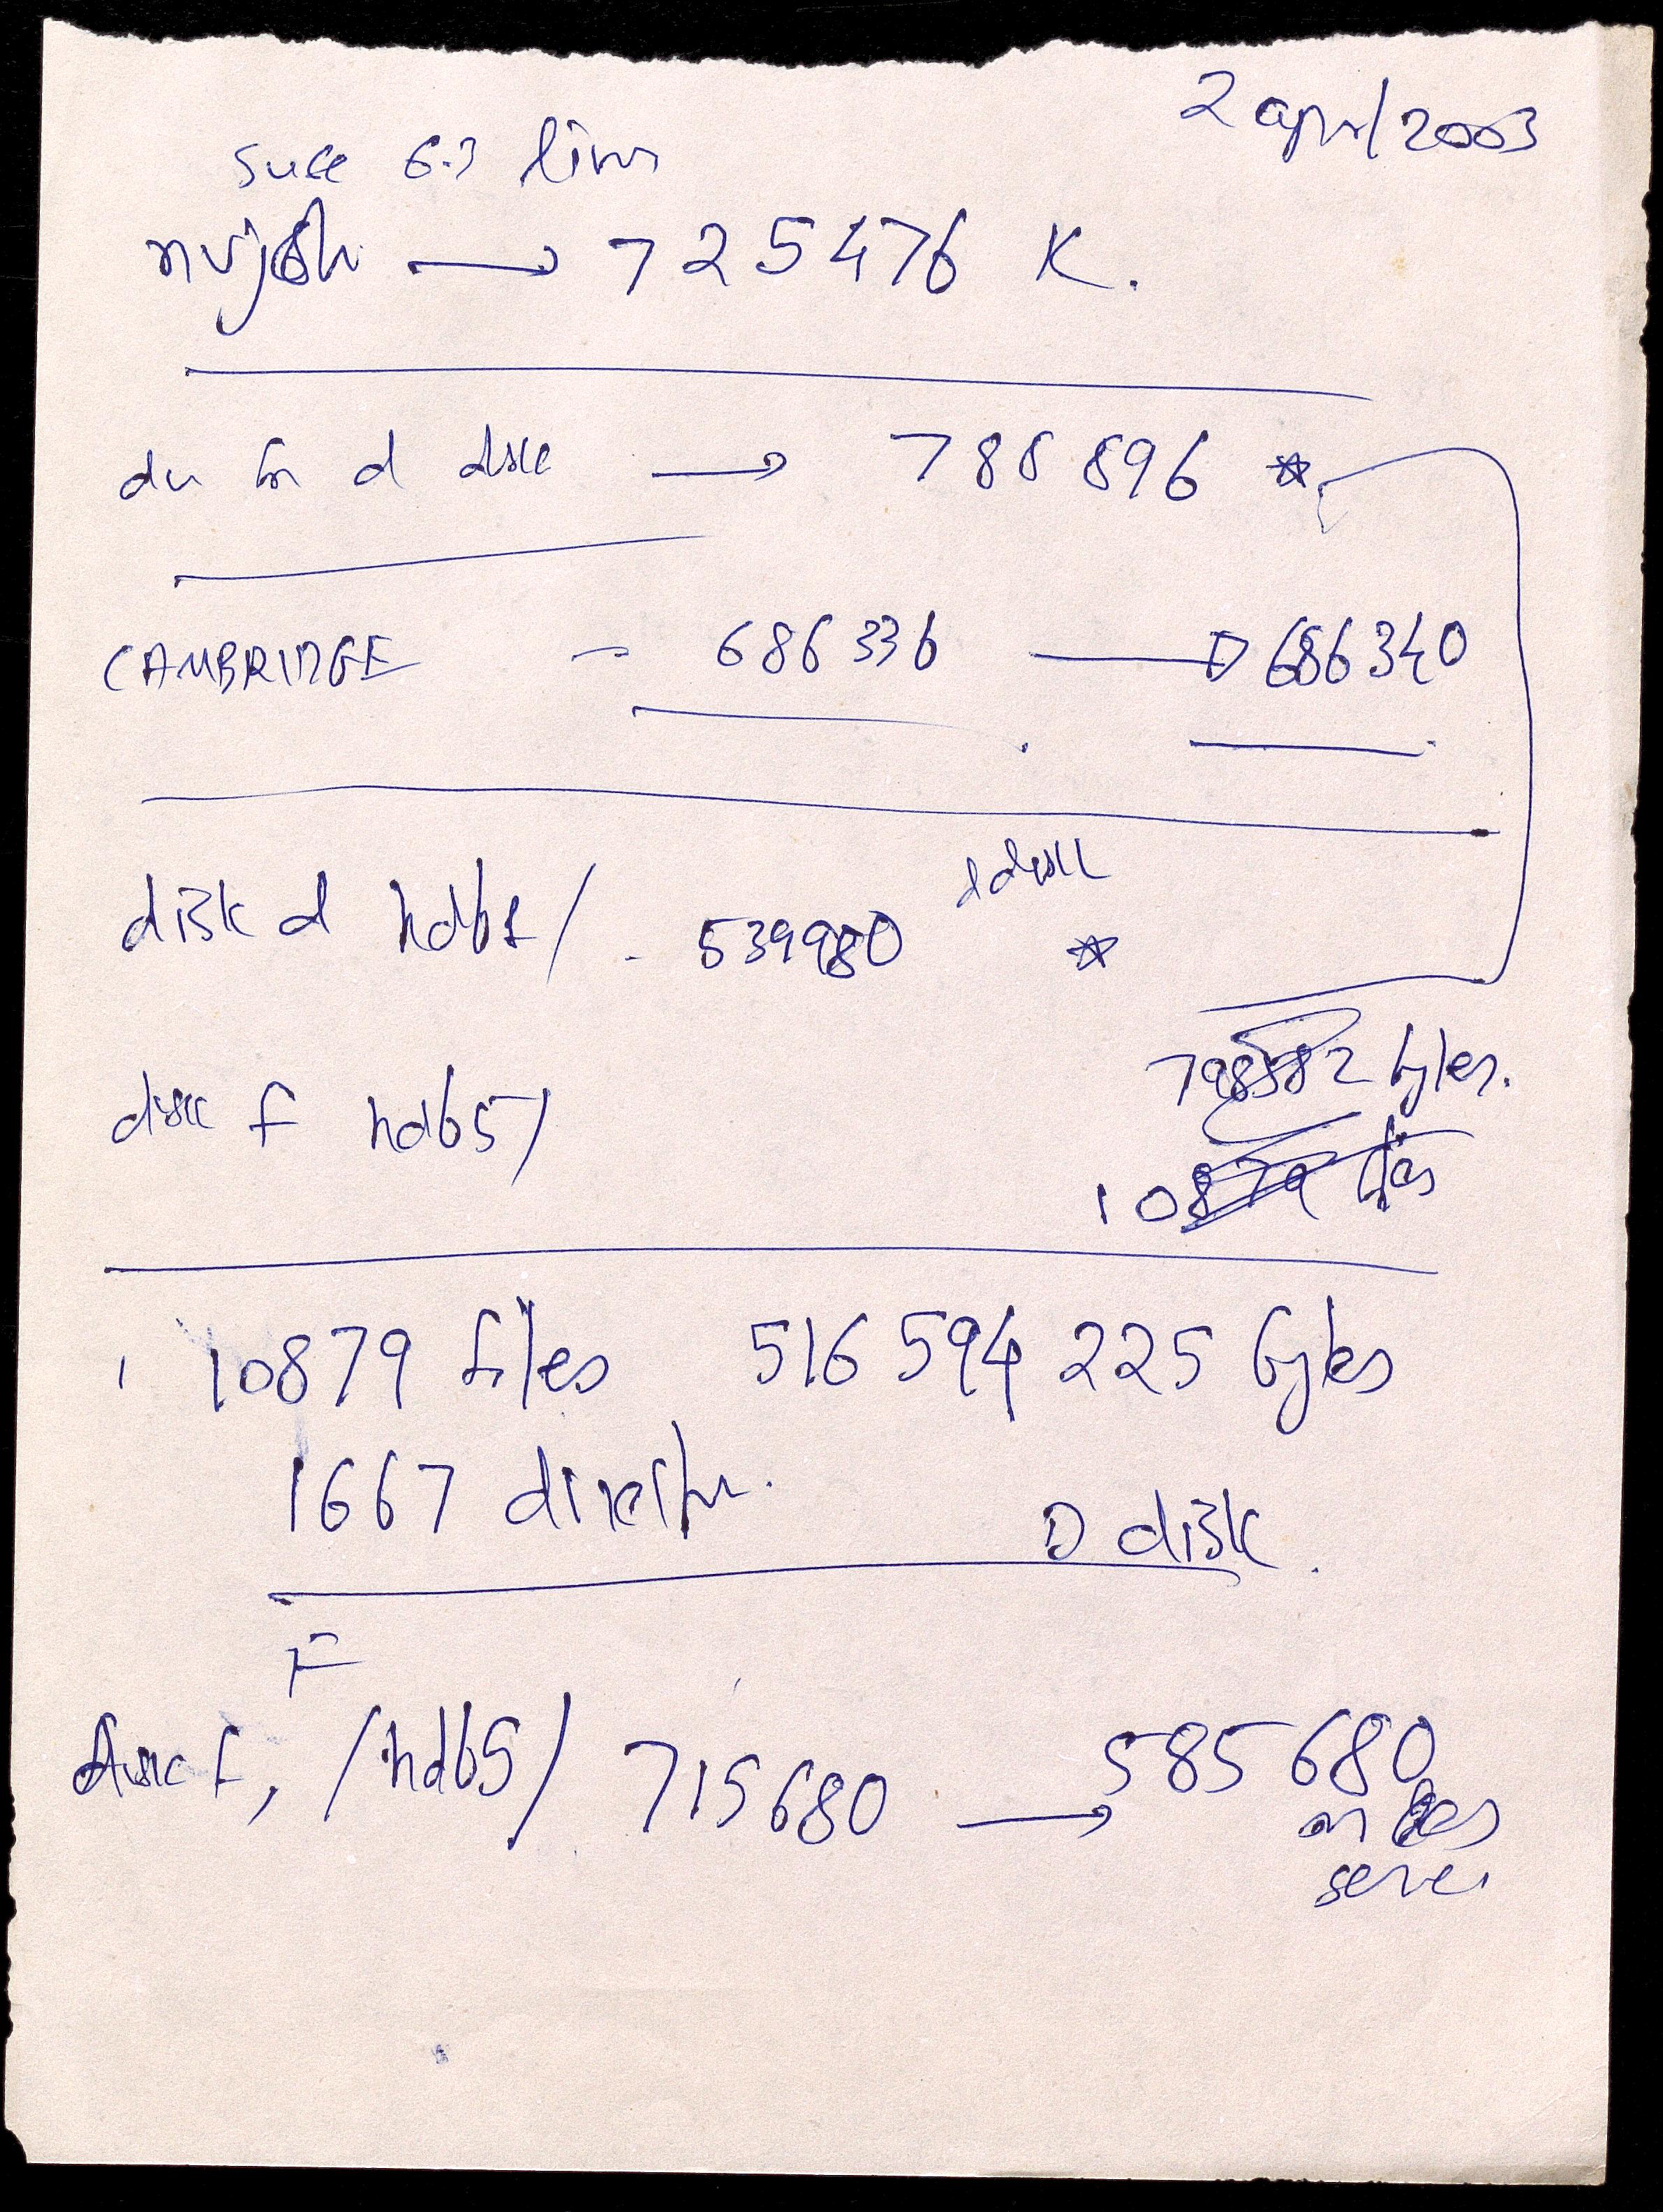 2 april 2003
Suse 6.3 linux
→ 725476 K.
du for d disc → 788896 *
CAMBRIDGE - 686336 → 686340
disk d hdb1/ - 539980 d disk *
disc f hdb5/
798582 bytes.
10879 files
10879 files 516 594 225 bytes
1667 director.
D disk.
F
disc f, /hdb5/ 715680 → 585680
on
server